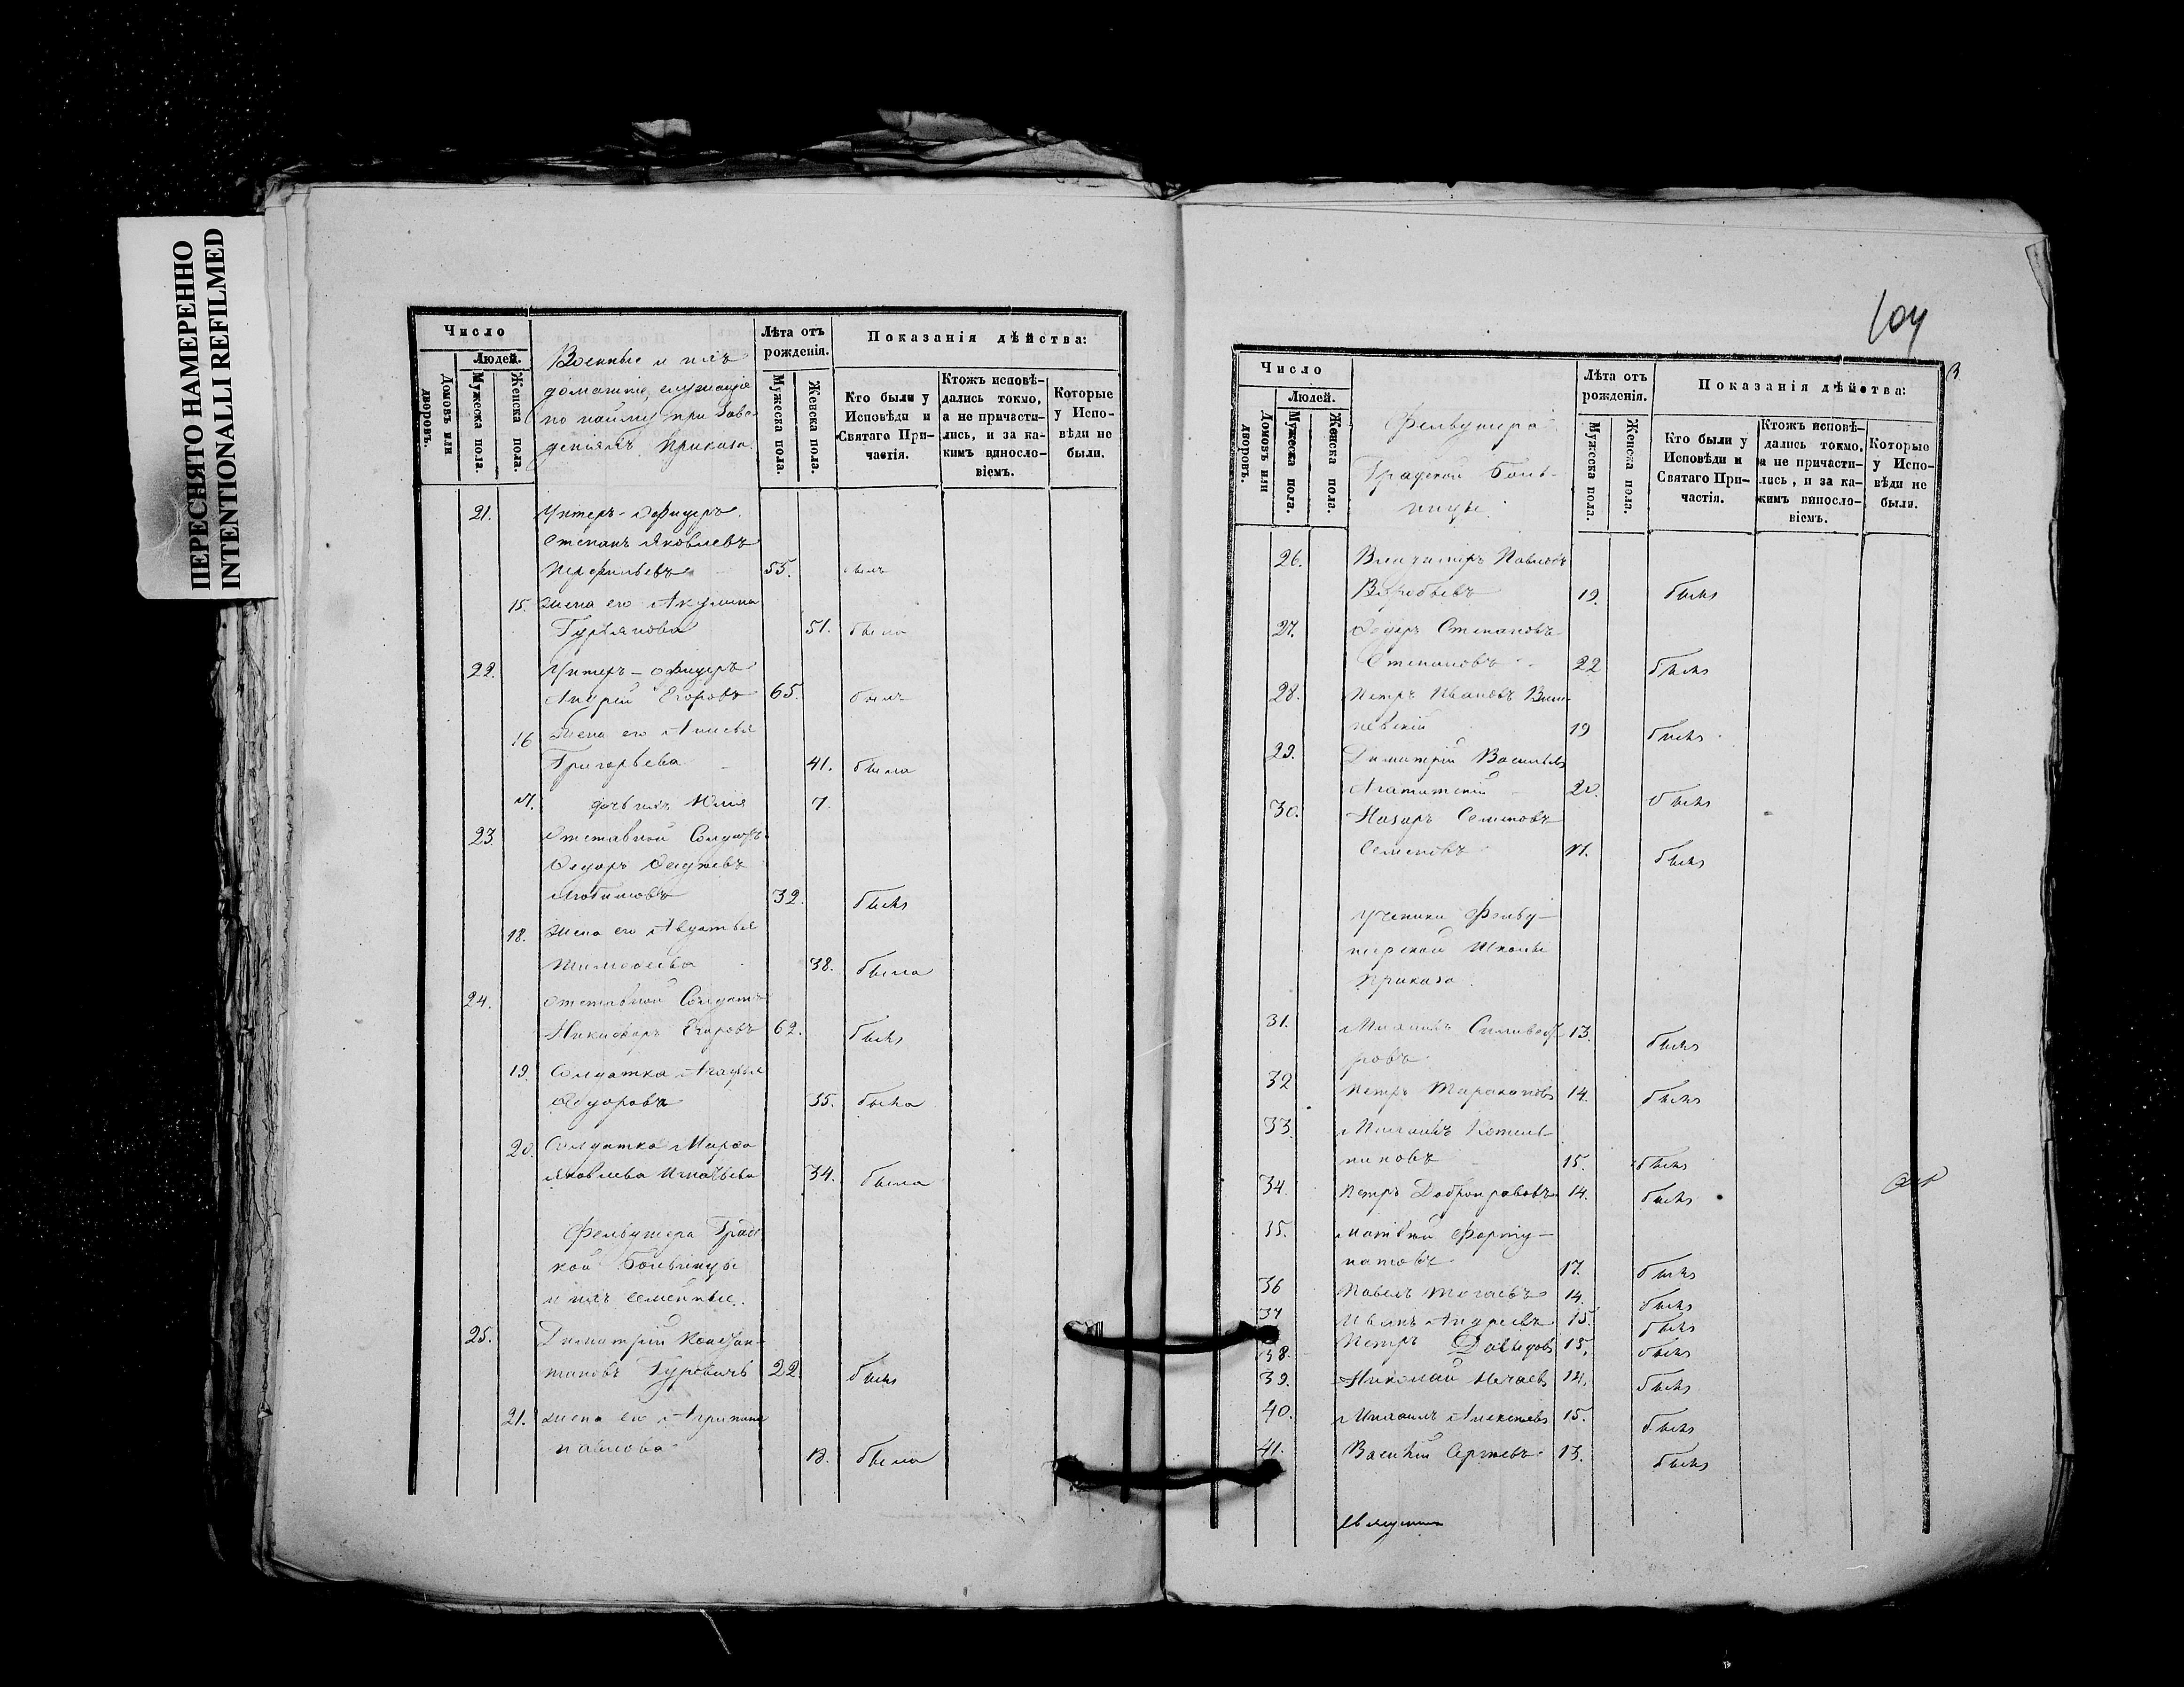 ПЕРЕСНЯТО НАМЕРЕННО
INTENTIONALLI REFILMED
Число
Людей.
Домовъ или дворовъ.
Мужеска пола.
Женска пола.
Военные и ихъ
домашніе, служащіе
по найму при Заве-
деніяхъ Приказа.
Лѣта отъ рожденія.
Мужеска пола.
Женска пола.
Показанія дѣйства:
Кто были у Исповѣди и Святаго Причастія.
Ктожъ исповѣдались токмо, а не причастились, и за какимъ винословіемъ.
Которые у Исповѣди не были.
21. Унтеръ-Офицеръ
Степанъ Яковлевъ
Перфильевъ 55. былъ
15. Жена его Акулина
Гурьянова 51. была
22. Унтеръ-офицеръ
Андрей Егоровъ 65. былъ
16 Жена его Анисья
Григорьева 41. была
17. дочь ихъ Юлія 7.
23. Отставной Солдатъ
Федоръ
Любимовъ 32. былъ
18. Жена его Авдотья
Тимофеева 38. была
24. Отставной Солдатъ
Никифоръ Егоровъ 62. былъ
19. Солдатка Агафья
Федорова 35. была
20. Солдатка Марфа
Яковлева Игнатьева 34. была
Фельдшера Град
кой Больницы
и ихъ семейные.
25. Димитрій Констан-
тиновъ Гуровичъ 22. былъ
21. Жена его
Павлова 18. была
104
Число
Людей.
Домовъ или дворовъ.
Мужеска пола.
Женска пола.
Градской Боль-
ницы.
Лѣта отъ рожденія.
Мужеска пола.
Женска пола.
Показанія дѣйства:
Кто были у Исповѣди и Святаго Причастія.
Ктожъ исповѣдались токмо, а не причастились, и за какимъ винословіемъ.
Которые у Исповѣди не были.
26. Владимиръ Павловъ
Воробьевъ 19. былъ
27. Федоръ Степановъ
Степановъ 22 былъ
28. Петръ Ивановъ Виш-
невскій 19 былъ
29. Димитрій Васильевъ
20. былъ
30. Назаръ Семеновъ
Семеновъ 17. былъ
Ученики Фельд-
шерской Школы
Приказа.
31. Михаилъ Сильвест
ровъ 13. былъ
32 Петръ Таракановъ 14. былъ
33. Михаилъ Котель-
никовъ 15. былъ
34. Петръ Добронравовъ 14. былъ
35. Матвей Форту-
натовъ 17. былъ
36 Павелъ 14. былъ
37 Иванъ Андреевъ 15. былъ
38. Петръ Давыдовъ 15. былъ
39. Николай Нечаевъ 14. былъ
40. Михаилъ Алексеевъ 15. былъ
41. Василій Сергеевъ 13. былъ
Священникъ